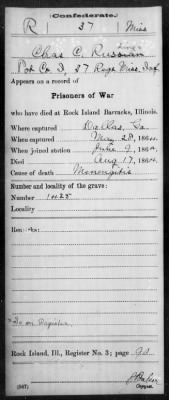 Confederate.
R 37 Miss
Chas C. Russian
Pvt Co I, 37 Regt Miss. Inf.
Appears on a record of
Prisoners of War
who have died at Rock Island Barracks, Illinois.
Where captured Dallas, Ga.
When captured May 28, 1864
When joined station June 9, 1864
Died Aug 17, 1864
Cause of death Meningitis
Number and locality of the grave:
Number 1425
Locality
Remarks:
Rock Island, Ill., Register No. 3; page
Copyist.